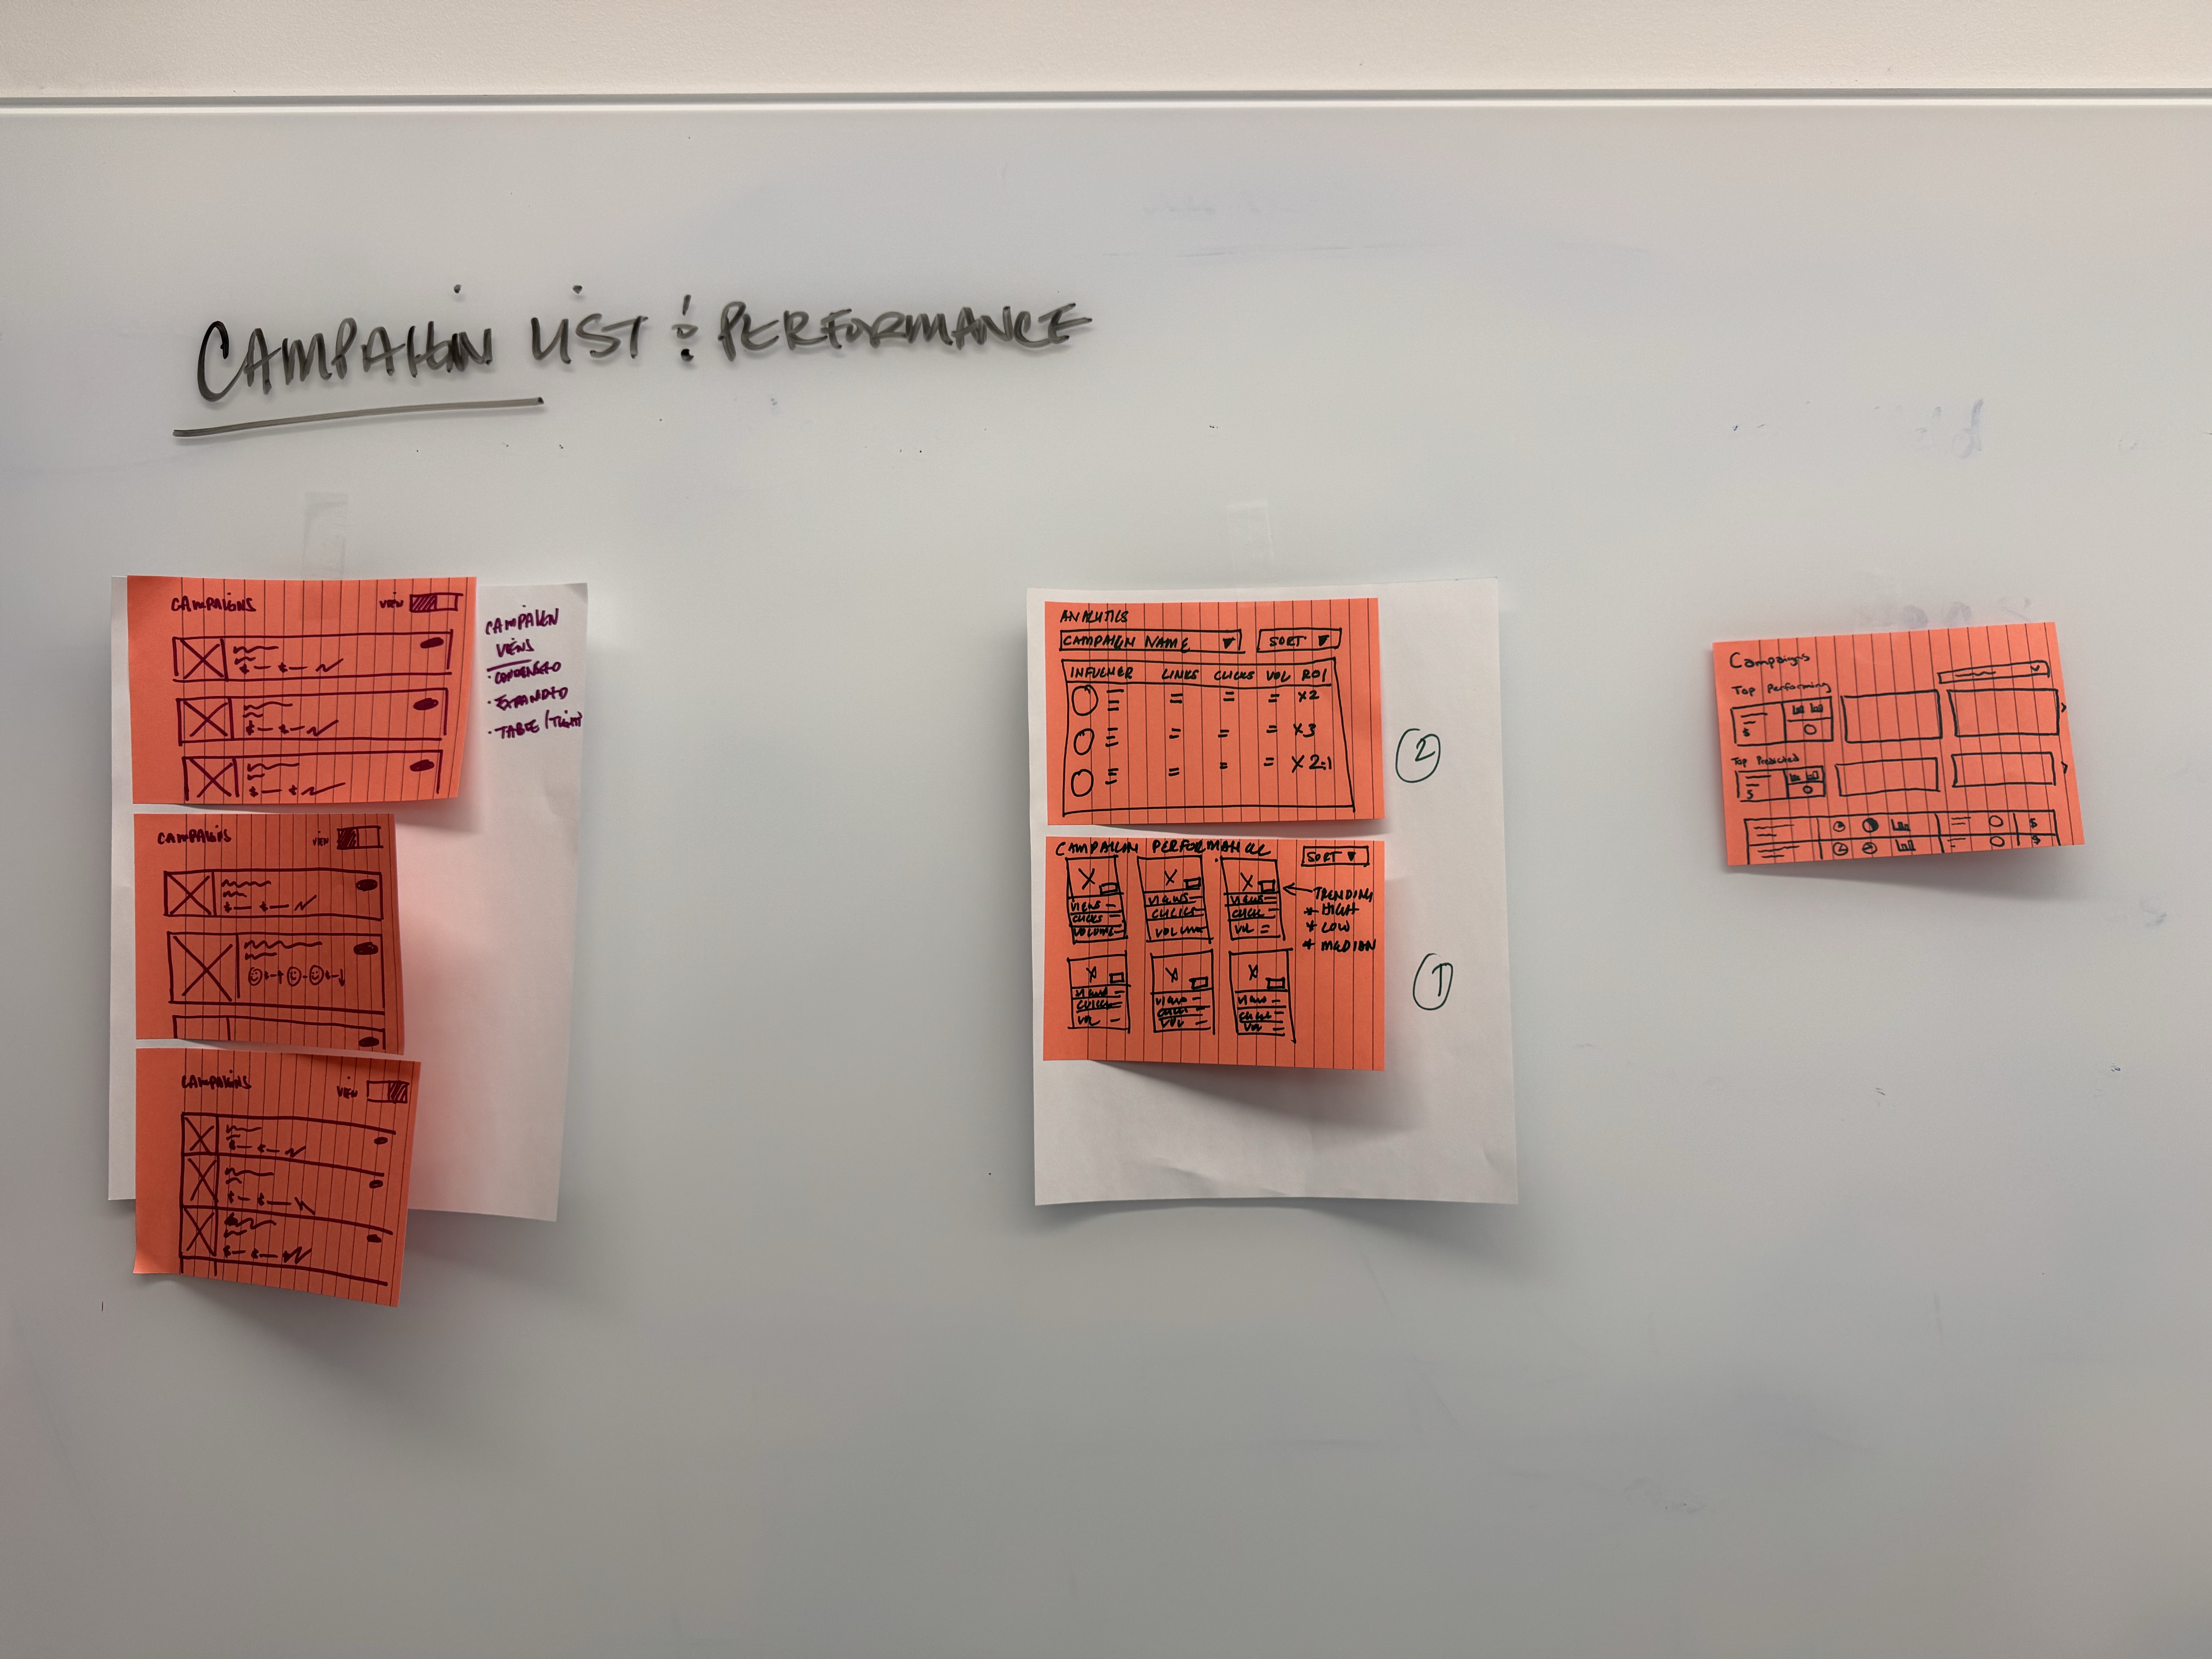 CAMPAIGN LIST & PERFORMANCE
CAMPAIGNS VIEW
CAMPAIGN
VIEWS
· CONDENSED
· EXPANDED
· TABLE/TIGHT
CAMPAIGNS VIEW
CAMPAIGNS VIEW
ANALYTICS
CAMPAIGN NAME SORT
INFULNER LINKS CLICKS VOL ROI
x2
x3
x2:1
2
CAMPAIGN PERFORMANCE
SORT
VIEWS VIEWS VIEWS
CLICKS CLICKS CLICK
VOLUME VOLUME VOL
TRENDING
* HIGH
* LOW
* MEDIAN
VIEWS VIEWS VIEWS
CLICK CLICK CLICK
VOL VOL VOL
1
Campaigns
Top Performing
$
Top Predicted
$
$
$